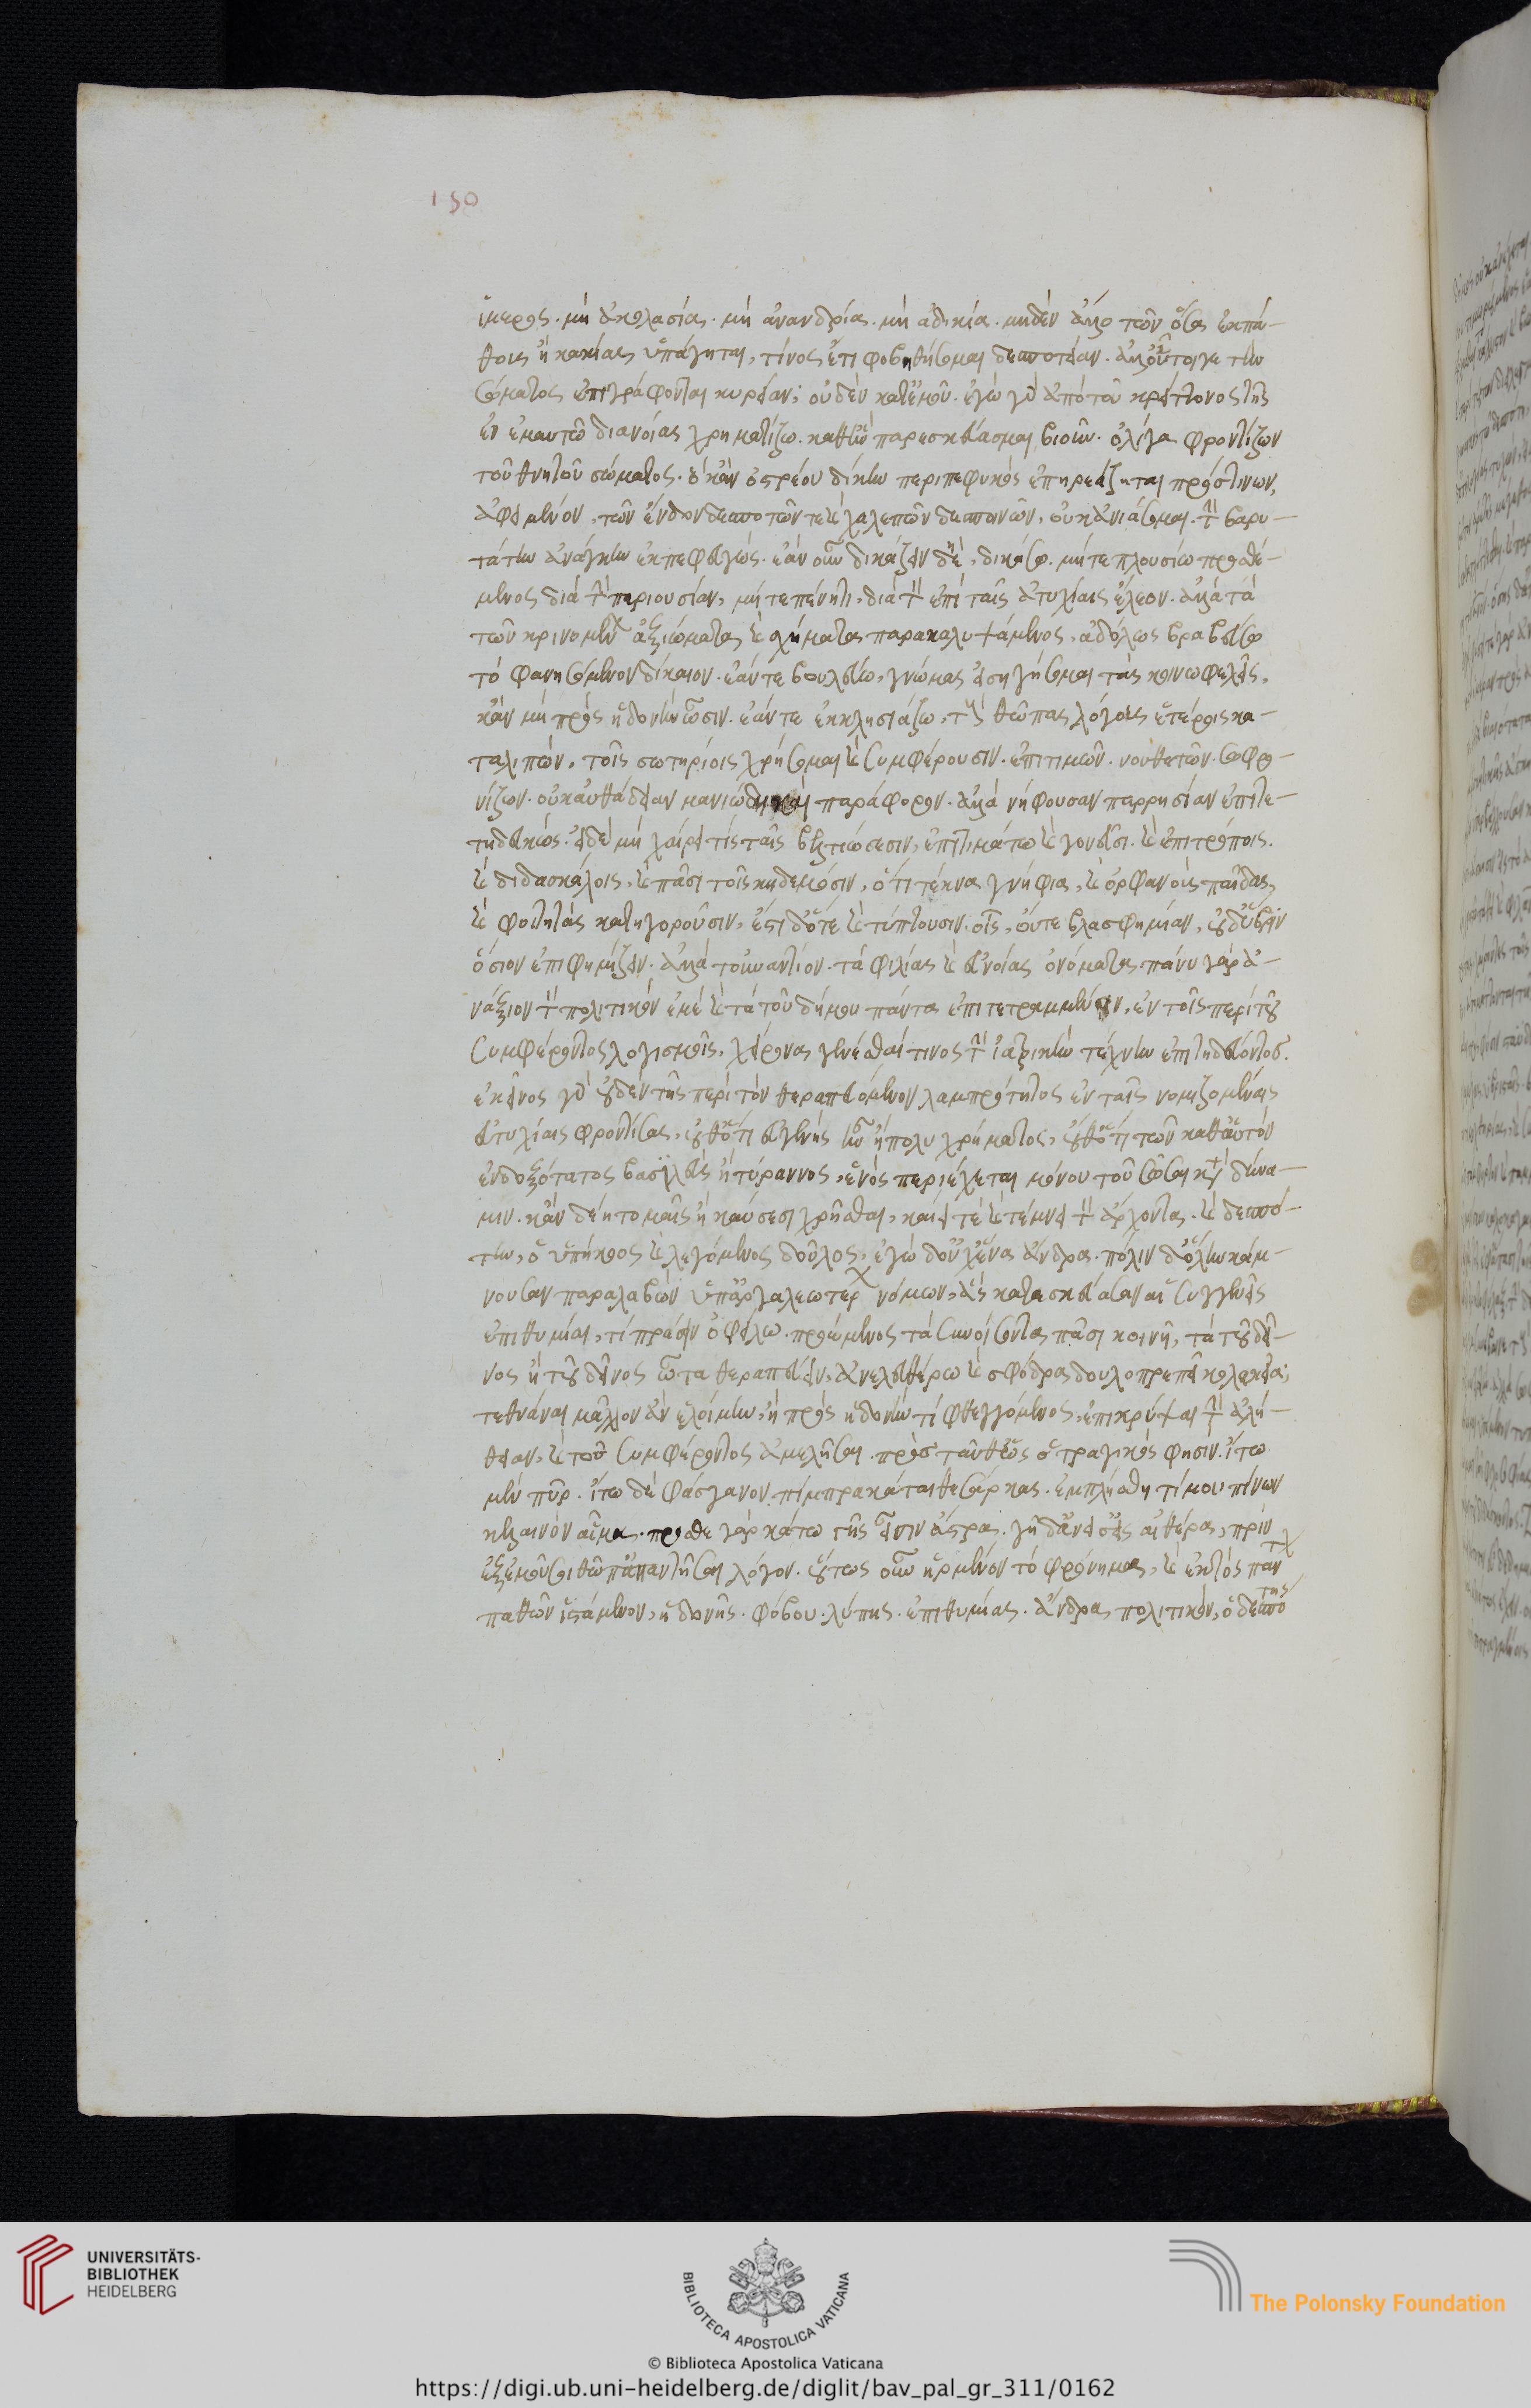 150
ἵμερος. μὴ ἀκολασίας. μὴ ἀνανδρίας. μὴ ἀδικία. μηδὲν ἄλλο τῶν ὅσα ἐκ πά-
θους ἢ κακίας ὑπάγηται, τίνος ἔτι φοβηθήσομαι δεσποτείαν. ἀλλ' οὗτοί γε τὴν
σώματος ἐπιγράφονται κυρείαν; οὐδὲν κατ' ἐμοῦ. ἐγὼ γὰρ ἀπὸ τοῦ κρείττονος τῆς
ἐν ἐμαυτῷ διανοίας χρηματίζω. καθ' ἣν παρεσκεύασμαι βιοῦν. ὀλίγα φροντίζων
τοῦ θνητοῦ σώματος. ὃ κἂν ὀστρέου δίκην περιπεφυκὸς ἐπηρεάζηται πρός τινων,
ἀφειμένον, τῶν ἔνδον δεσποτῶν τε καὶ χαλεπῶν δεσποινῶν, οὐκ ἀνιάσομαι. τὴν βαρυ-
τάτην ἀνάγκην ἐκπεφευγώς. ἐὰν οὖν δικάζειν δέῃ, δικάσω. μήτε πλουσίῳ προσθέ-
μενος διὰ τὴν περιουσίαν, μήτε πένητι, διὰ τὸν ἐπὶ ταῖς ἀτυχίαις ἔλεον. ἀλλὰ τὰ
τῶν κρινομένων ἀξιώματα καὶ σχήματα παρακαλυψάμενος, ἀδόλως βραβεύσω
τὸ φανησόμενον δίκαιον. ἐάν τε βουλεύω, γνώμας εἰσηγήσομαι τὰς κοινωφελεῖς,
κἂν μὴ πρὸς ἡδονὴν ὦσιν. ἐάν τε ἐκκλησιάζω, τοὺς θῶπας λόγους ἑτέροις κα-
ταλιπών, τοῖς σωτηρίοις χρήσομαι καὶ συμφέρουσιν. ἐπιτιμῶν. νουθετῶν. σωφρο-
νίζων. οὐκ αὐθάδειαν μανιώδη καὶ παράφορον. ἀλλὰ νήφουσαν παρρησίαν ἐπιτε-
τηδευκώς. εἰ δὲ μὴ χαίρει τις ταῖς βελτιώσεσιν, ἐπιτιμάτω καὶ γονεῦσι. καὶ ἐπιτρόποις.
καὶ διδασκάλοις, καὶ πᾶσι τοῖς κηδεμόσιν, ὅτι τέκνα γνήσια, καὶ ὀρφανοὺς παῖδας,
καὶ φοιτητὰς κατηγοροῦσιν, ἔστι δ' ὅτε καὶ τύπτουσιν. οἷς, οὔτε βλασφημίαν, οὐδ' ὕβριν
ὅσιον ἐπιφημίζειν. ἀλλὰ τοὐναντίον. τὰ φιλίας καὶ εὐνοίας ὀνόματα. πάνυ γὰρ ἀ-
νάξιον τὸν πολιτικὸν ἐμὲ καὶ τὰ τοῦ δήμου πάντα ἐπιτετραμμένον, ἐν τοῖς περὶ τοῦ
συμφέροντος λογισμοῖς, χείρονα γενέσθαι τινος τὴν ἰατρικὴν τέχνην ἐπιτηδεύοντος.
ἐκεῖνος γὰρ οὐδὲν τῆς περὶ τὸν θεραπευόμενον λαμπρότητος ἐν ταῖς νομιζομέναις
εὐτυχίαις φροντίσας, οὐθ' ὅτι εὐγενής ἐστιν ἢ πολυχρήματος, οὐθ' ὅτι τῶν καθ' αὑτὸν
ἐνδοξότατος βασιλεὺς ἢ τύραννος, ἑνὸς περιέχεται μόνου τοῦ σῶσαι κατὰ δύνα-
μιν. κἂν δέῃ τομαῖς ἢ καύσεσι χρῆσθαι, καίει τε καὶ τέμνει τὸν ἄρχοντα. καὶ δεσπό-
την, ὁ ὑπήκοος καὶ λεγόμενος δοῦλος, ἐγὼ δ' οὐχ ἕνα ἄνδρα. πόλιν δ' ὅλην κάμ-
νουσαν παραλαβὼν ὑπ' ἀργαλεωτέρων νόσων, ἃς κατεσκεύασαν αἱ συγγενεῖς
ἐπιθυμίαι, τί πράσειν ὀφείλω. προέμενος τὰ συνοίσοντα πᾶσι κοινῇ, τὰ τοῦ δεῖ-
νος ἢ τοῦ δεῖνος ὦτα θεραπεύειν, ἀνελευθέρῳ καὶ σφόδρα δουλοπρεπεῖ κολακείᾳ;
τεθνάναι μᾶλλον ἂν ἑλοίμην, ἢ πρὸς ἡδονήν τι φθεγγόμενος, ἐπικρύψαι τὴν ἀλή-
θειαν, καὶ τοῦ συμφέροντος ἀμελῆσαι. πρὸς ταῦθ' ὡς ὁ τραγικός φησιν. ἴτω
μὲν πῦρ. ἴτω δὲ φάσγανον. πίμπρα κάταιθε σάρκας. ἐμπλήσθητί μου πίνων
κελαινὸν αἷμα. πρόσθε γὰρ κάτω τῆς εἶσιν ἄστρα. γῆ δ' ἄνεισ' εἰς αἰθέρα, πρὶν
ἐξ ἐμοῦ σοι θῶπ' ἀπαντῆσαι λόγον. οὕτως οὖν ἠρμένον τὸ φρόνημα, καὶ ἐκτὸς πάντων
παθῶν ἱστάμενον, ἡδονῆς. φόβου. λύπης. ἐπιθυμίας. ἄνδρα πολιτικὸν, ὁ δεσπότης
UNIVERSITÄTS-
BIBLIOTHEK
HEIDELBERG
BIBLIOTECA APOSTOLICA VATICANA
The Polonsky Foundation
© Biblioteca Apostolica Vaticana
https://digi.ub.uni-heidelberg.de/diglit/bav_pal_gr_311/0162